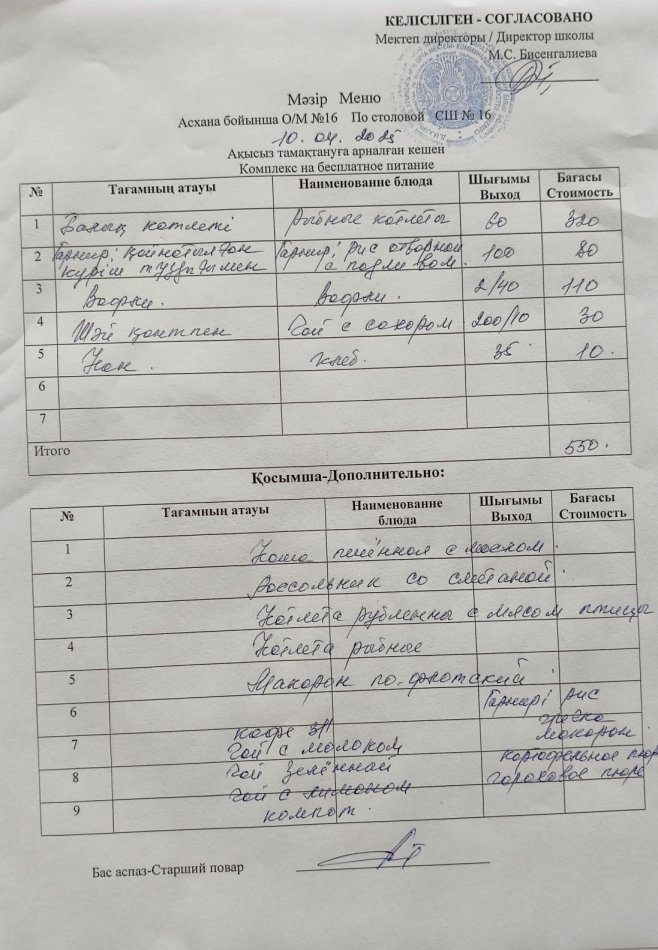 КЕЛІСІЛГЕН - СОГЛАСОВАНО
Мектеп директоры / Директор школы
М.С. Бисенгалиева
Мәзір Меню
Асхана бойынша О/М №16 По столовой СШ № 16
10.04.2025
Ақысыз тамақтануға арналған кешен
Комплекс на бесплатное питание
№ Тағамның атауы Наименование блюда Шығымы Выход Бағасы Стоимость
1 Балық котлеті Рыбные котлеты 60 320
2 Гарнир: Қайнатылған күріш тұздығымен Гарнир: рис отворной с подливом. 100 80
3 Вафли. Вафли. 2/40 110
4 Шәй қантпен Чай с сахаром 200/10 30
5 Нан. Хлеб. 35 10.
6
7
Итого 550.
Қосымша-Дополнительно:
№ Тағамның атауы Наименование блюда Шығымы Выход Бағасы Стоимость
1 Каша пшённая с маслом.
2 Рассольник со сметаной.
3 Котлета рубленны с мясом птицы
4 Котлета рыбные
5 Макарон по-флотский.
6 Гарнир: рис
гречка
7 кофе 3/1 макарон.
чай с молоком картофельное пюре
8 чай зелённай гороховое пюре
чай с лимоном
9 компот.
Бас аспаз-Старший повар